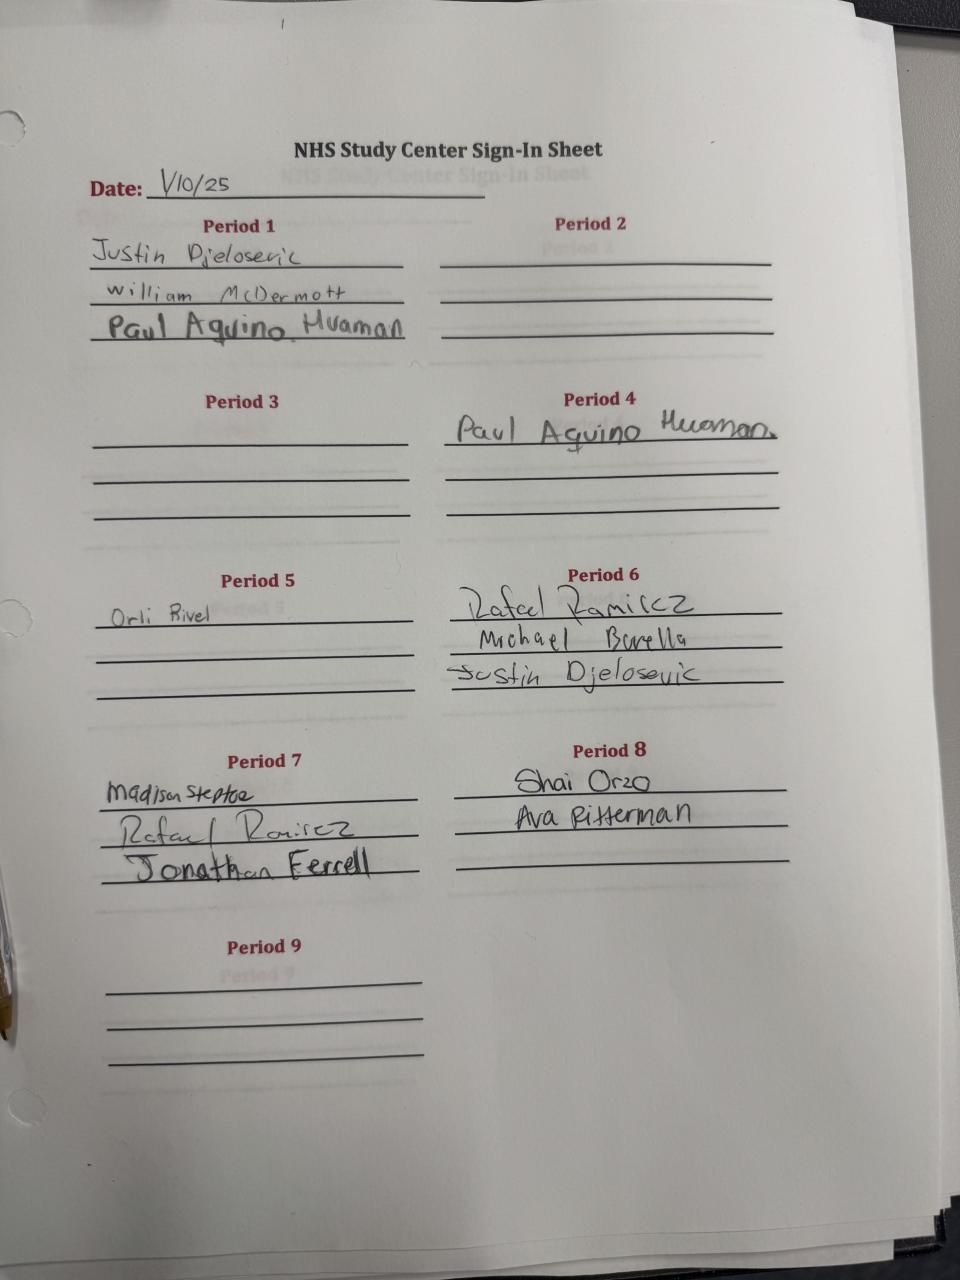 NHS Study Center Sign-In Sheet
Date: 1/10/25
Period 1
Justin Djelosevic
William McDermott
Paul Aquino Huaman
Period 2
Period 3
Period 4
Paul Aquino Huaman
Period 5
Orli Rivel
Period 6
Rafael Ramirez
Michael Barella
Justin Djelosevic
Period 7
Madison Steptoe
Rafael Ramirez
Jonathan Ferrell
Period 8
Shai Orzo
Ava Pitterman
Period 9